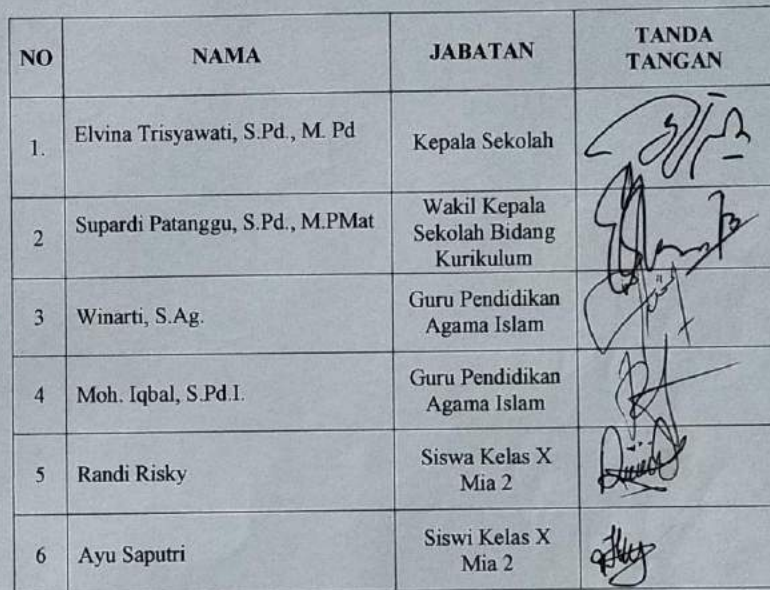 NO NAMA JABATAN TANDA
TANGAN
1. Elvina Trisyawati, S.Pd., M. Pd Kepala Sekolah
2 Supardi Patanggu, S.Pd., M.PMat Wakil Kepala
Sekolah Bidang
Kurikulum
3 Winarti, S.Ag. Guru Pendidikan
Agama Islam
4 Moh. Iqbal, S.Pd.I. Guru Pendidikan
Agama Islam
5 Randi Risky Siswa Kelas X
Mia 2
6 Ayu Saputri Siswi Kelas X
Mia 2